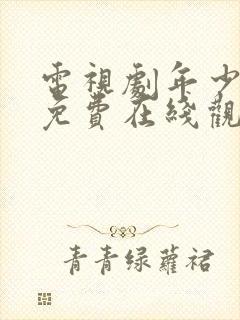 電視劇年少
免費在綫觀
青青绿蘿裙